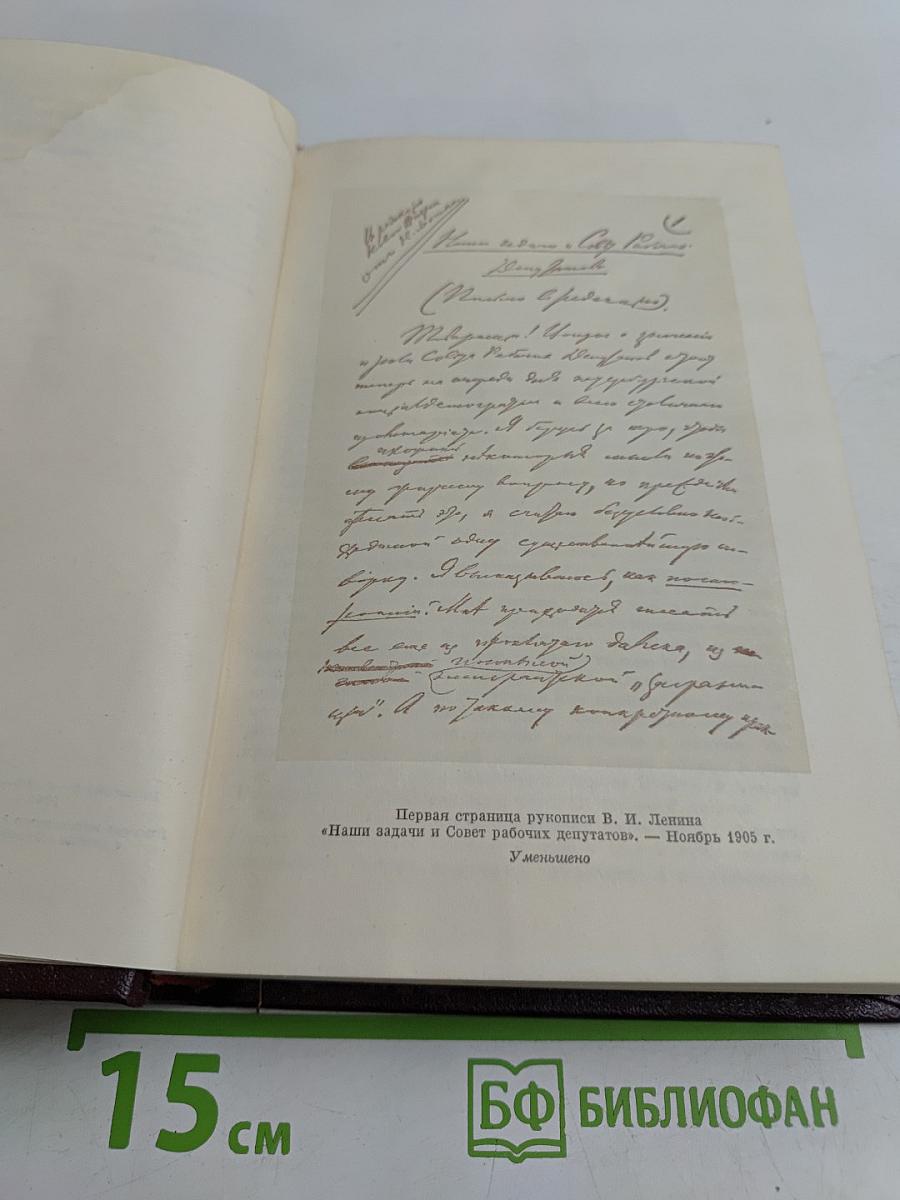 Наши задачи и Совет Рабочих
Депутатов.
(Письмо в редакцию).
Товарищи! Вопрос о значении
и роли Совета Рабочих Депутатов стоит
теперь на очереди дня петербургской
социалдемократии и всего столичного
пролетариата. Я берусь за перо, чтобы
изложить
некоторые мысли по
этому вопросу, но прежде чем
сделать это, я считаю безусловно необ-
ходимой одну существеннейшую ого-
ворку. Я высказываюсь, как посто-
ронний. Мне приходится писать
все еще из проклятого далека, из
постылой
эмигрантской "заграни-
цы". А по такому конкретному
Первая страница рукописи В. И. Ленина
«Наши задачи и Совет рабочих депутатов». — Ноябрь 1905 г.
Уменьшено
15 см
БФ БИБЛИОФАН